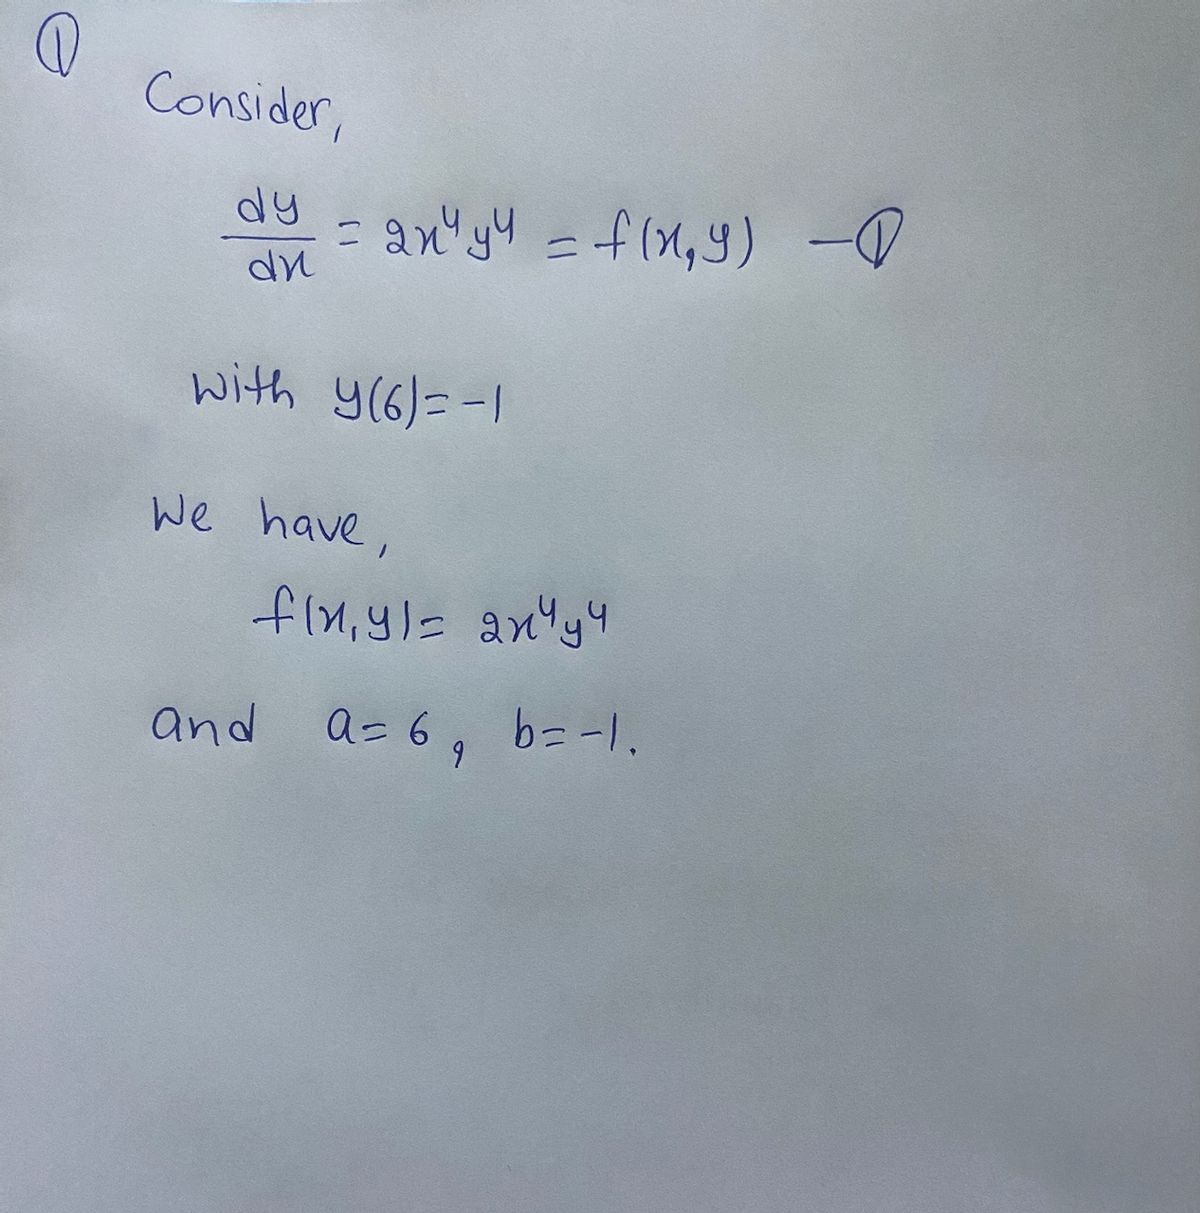 ①
Consider,
dy/dx = 2x⁴y⁴ = f(x,y) —①
with y(6)=-1
We have,
f(x,y)= 2x⁴y⁴
and a=6, b=-1.